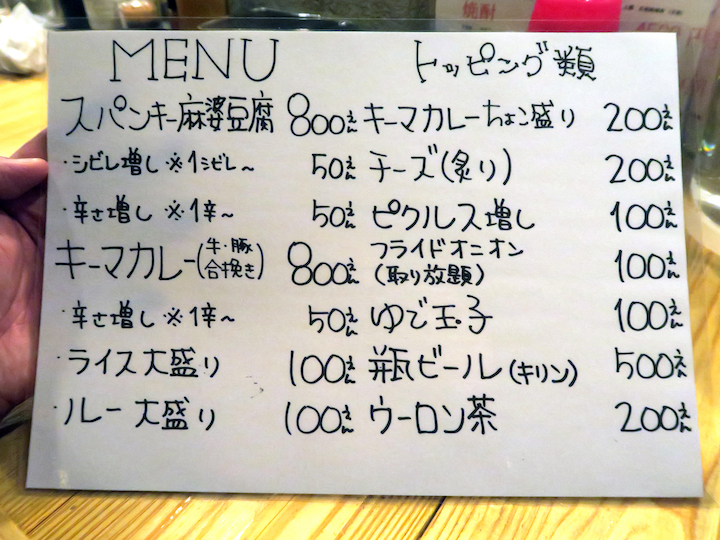 MENU
スパンキー麻婆豆腐 800えん
・シビレ増し ※1シビレ~ 50えん
・辛さ増し ※1辛~ 50えん
キーマカレー(牛・豚合挽き) 800えん
・辛さ増し ※1辛~ 50えん
・ライス大盛り 100えん
・ルー大盛り 100えん
トッピング類
キーマカレーちょこ盛り 200えん
チーズ(炙り) 200えん
ピクルス増し 100えん
フライドオニオン
(取り放題) 100えん
ゆで玉子 100えん
瓶ビール(キリン) 500えん
ウーロン茶 200えん
焼酎